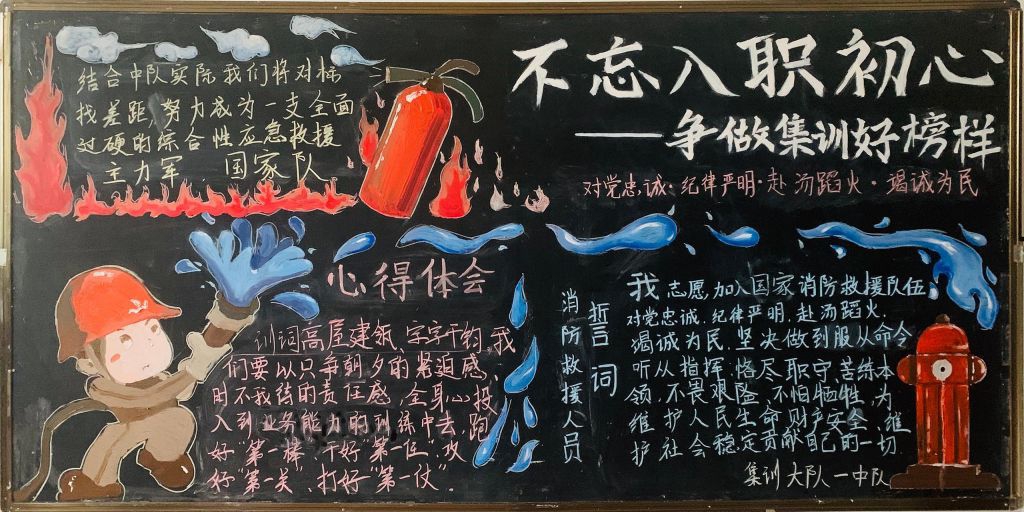 不忘入职初心
——争做集训好榜样
对党忠诚·纪律严明·赴汤蹈火·竭诚为民
结合中队实际我们将对标
找差距,努力成为一支全面
过硬的综合性应急救援
主力军 国家队
心得体会
训词高屋建瓴,字字千钧,我
们要以只争朝夕的紧迫感,
时不我待的责任感,全身心投
入到业务能力的训练中去,跑
好“第一棒”干好“第一任”,攻
好“第一关,打好“第一仗”.
消防救援人员
誓词
我志愿,加入国家消防救援队伍,
对党忠诚,纪律严明,赴汤蹈火.
竭诚为民,坚决做到服从命令
听从指挥,恪尽职守,苦练本
领,不畏艰险,不怕牺牲,为
维护人民生命,财产安全、维
护社会稳定贡献自己的一切.
集训大队一中队